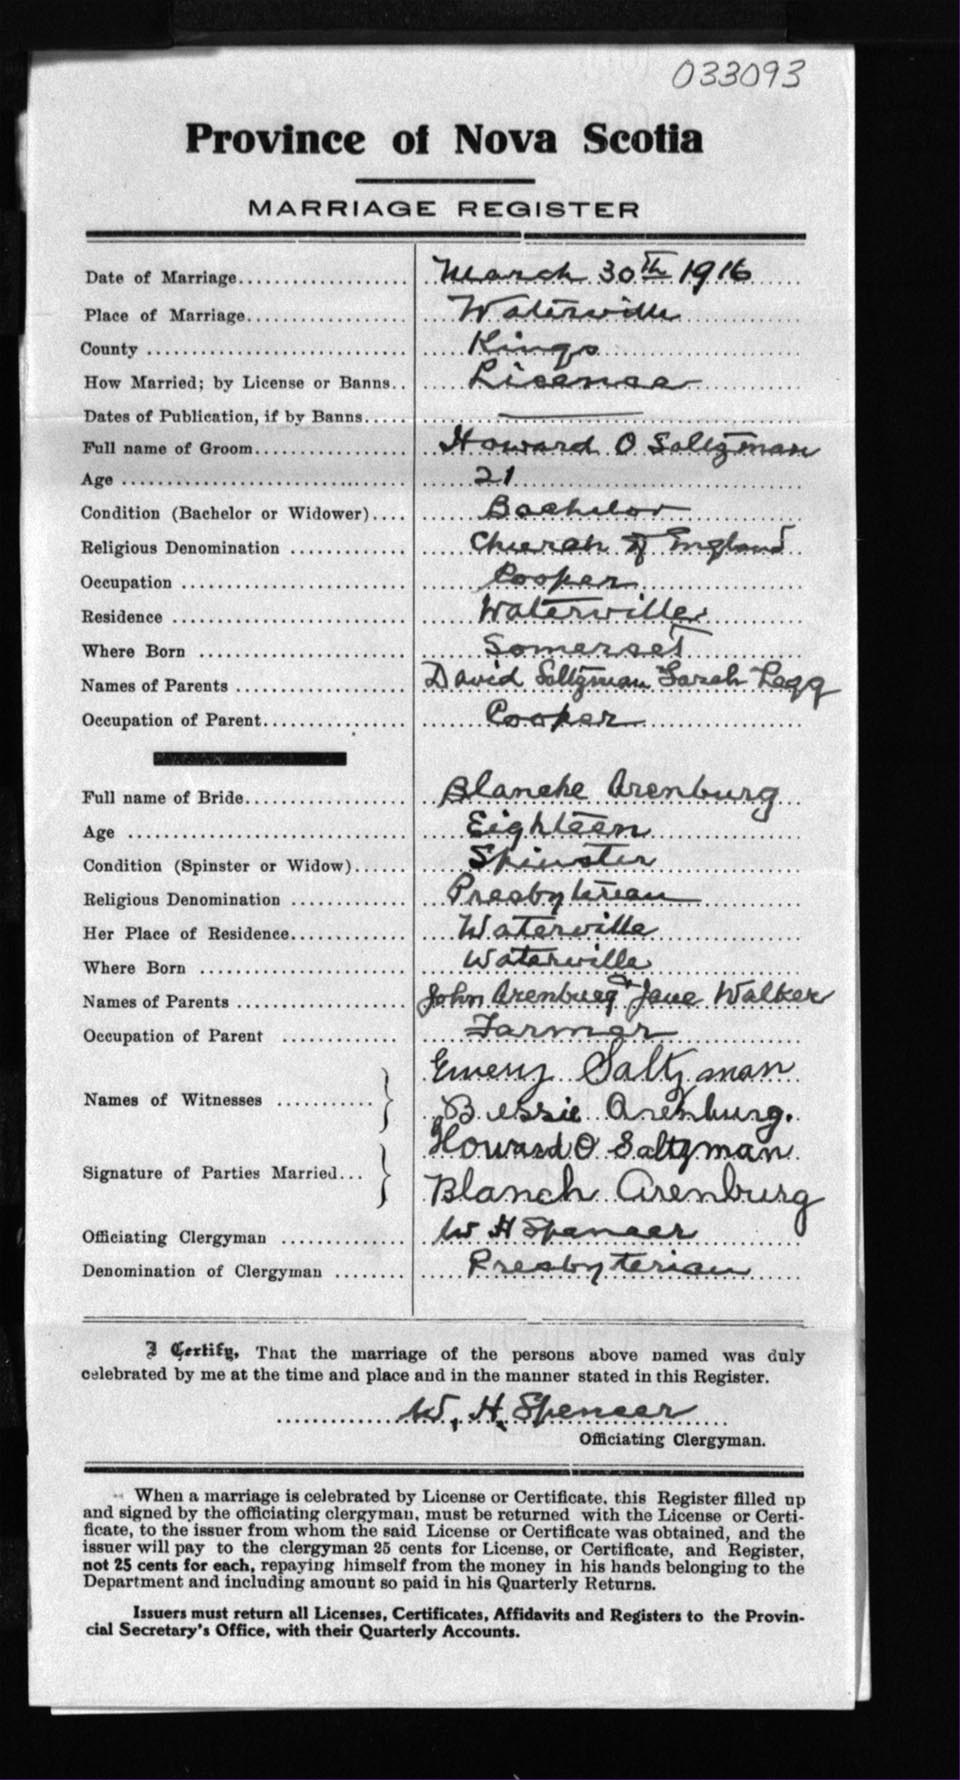 033093
Province of Nova Scotia
MARRIAGE REGISTER
Date of Marriage................... March 30th 1916
Place of Marriage.................. Waterville
County ............................. Kings
How Married; by License or Banns.. License
Dates of Publication, if by Banns..... ———
Full name of Groom................. Howard O Saltzman
Age ................................ 21
Condition (Bachelor or Widower).... Bachelor
Religious Denomination ............. Church of England
Occupation ......................... Cooper
Residence .......................... Waterville
Where Born ........................ Somerset
Names of Parents ................... David Saltzman Sarah Legg
Occupation of Parent................ Cooper
Full name of Bride.................. Blanche Arenburg
Age ................................ Eighteen
Condition (Spinster or Widow)...... Spinster
Religious Denomination ............. Presbyterian
Her Place of Residence............. Waterville
Where Born ........................ Waterville
Names of Parents ................... John Arenburg & Jane Walker
Occupation of Parent .............. Farmer
Names of Witnesses ........... Emery Saltzman
Bessie Arenburg.
Signature of Parties Married... Howard O Saltzman
Blanch Arenburg
Officiating Clergyman .............. W H Spencer
Denomination of Clergyman ........ Presbyterian
I Certify, That the marriage of the persons above named was duly
celebrated by me at the time and place and in the manner stated in this Register.
W. H. Spencer
Officiating Clergyman.
When a marriage is celebrated by License or Certificate, this Register filled up
and signed by the officiating clergyman, must be returned with the License or Certi-
ficate, to the issuer from whom the said License or Certificate was obtained, and the
issuer will pay to the clergyman 25 cents for License, or Certificate, and Register,
not 25 cents for each, repaying himself from the money in his hands belonging to the
Department and including amount so paid in his Quarterly Returns.
Issuers must return all Licenses, Certificates, Affidavits and Registers to the Provin-
cial Secretary's Office, with their Quarterly Accounts.